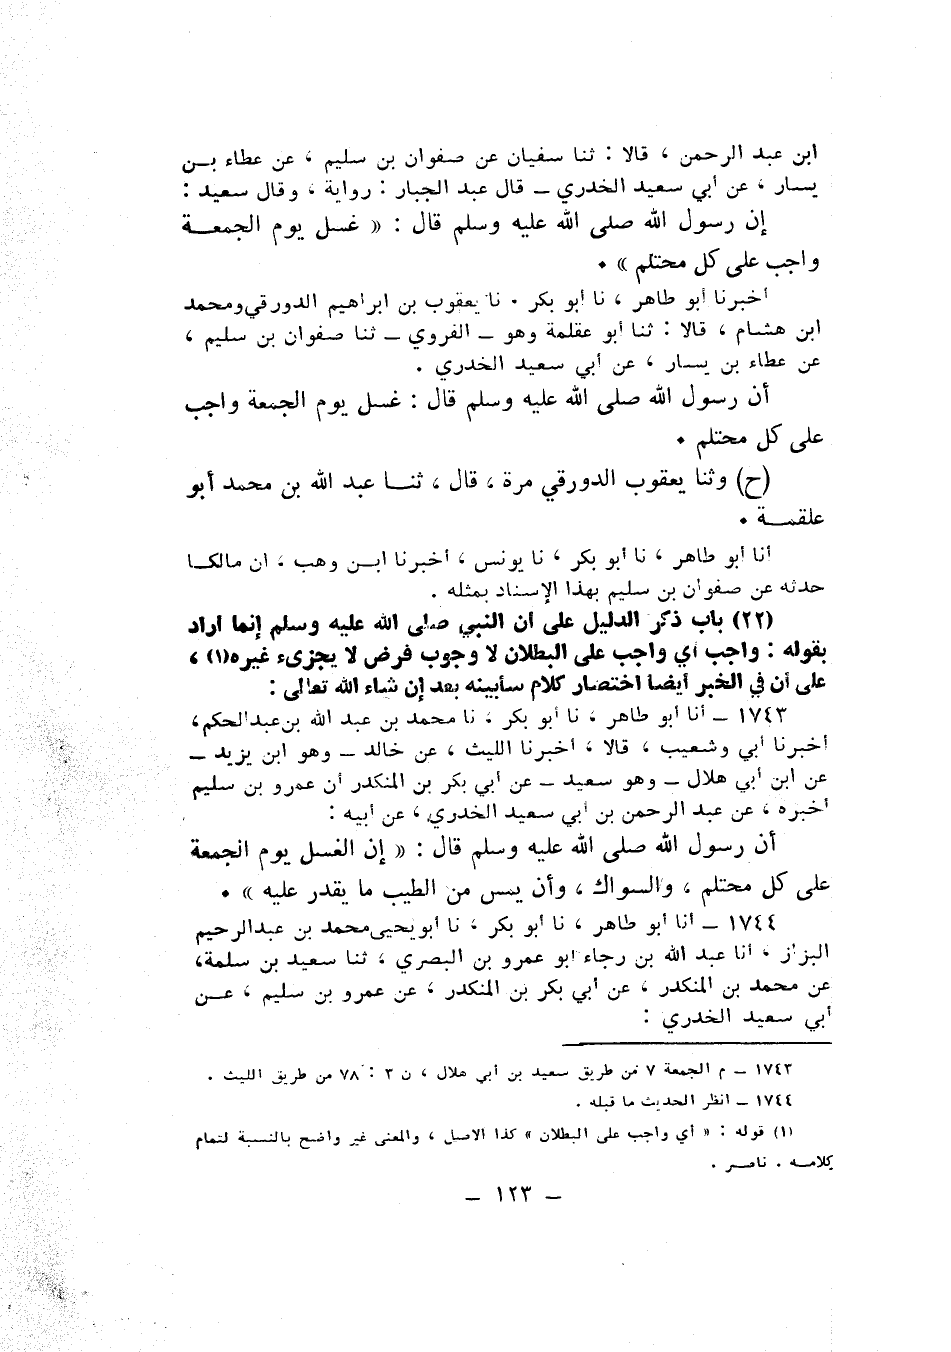 ابن عبد الرحمن ، قالا : ثنا سفيان عن صفوان بن سليم ، عن عطاء بـن
يسار ، عن أبي سعيد الخدري ـ قال عبد الجبار : رواية ، وقال سعيد :
إن رسول الله صلى الله عليه وسلم قال : « غسل يوم الجمعـة
واجب على كل محتلم » ٠
أخبرنا أبو طاهر ، نا أبو بكر ٠ نا يعقوب بن ابراهيم الدورقي ومحمد
ابن هشام ، قالا : ثنا أبو عقلمة وهو ـ الفروي ـ ثنا صفوان بن سليم ،
عن عطاء بن يسار ، عن أبي سعيد الخدري .
أن رسول الله صلى الله عليه وسلم قال : غسل يوم الجمعة واجب
على كل محتلم ٠
(ح) وثنا يعقوب الدورقي مرة ، قال ، ثنـا عبد الله بن محمد أبو
علقمـة ٠
أنا أبو طاهر ، نا أبو بكر ، نا يونس ، أخبرنا ابـن وهب ، ان مالكـا
حدثه عن صفوان بن سليم بهذا الإسناد بمثله .
(٢٢) باب ذكر الدليل على أن النبي صلى الله عليه وسلم إنما أراد
بقوله : واجب أي واجب على البطلان لا وجوب فرض لا يجزىء غيره(١) ،
على أن في الخبر أيضا اختصار كلام سأبينه بعد إن شاء الله تعالى :
١٧٤٣ ـ أنا أبو طاهر ، نا أبو بكر ، نا محمد بن عبد الله بن عبدالحكم،
أخبرنا أبي وشعيب ، قالا ، أخبرنا الليث ، عن خالد ـ وهو ابن يزيد ـ
عن ابن أبي هلال ـ وهو سعيد ـ عن أبي بكر بن المنكدر أن عمرو بن سليم
أخبره ، عن عبد الرحمن بن أبي سعيد الخدري ، عن أبيه :
أن رسول الله صلى الله عليه وسلم قال : « إن الغسل يوم الجمعة
على كل محتلم ، والسواك ، وأن يمس من الطيب ما يقدر عليه » ٠
١٧٤٤ ـ أنا أبو طاهر ، نا أبو بكر ، نا أبو يحيى محمد بن عبدالرحيم
البزاز ، أنا عبد الله بن رجاء ابو عمرو بن البصري ، ثنا سعيد بن سلمة،
عن محمد بن المنكدر ، عن أبي بكر بن المنكدر ، عن عمرو بن سليم ، عـن
أبي سعيد الخدري :
١٧٤٣ ـ م الجمعة ٧ من طريق سعيد بن أبي هلال ، ن ٣ : ٧٨ من طريق الليث .
١٧٤٤ ـ انظر الحديث ما قبله .
(١) قوله : « أي واجب على البطلان » كذا الاصل ، والمعنى غير واضح بالنسبة لتمام
كلامـه . ناصـر .
ـ ١٢٣ ـ